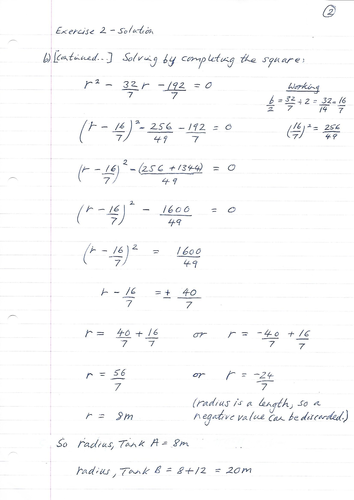 ②
Exercise 2 - Solution
b) [continued..] Solving by completing the square:
r² - 32/7 r - 192/7 = 0
Working
b/2 = 32/7 ÷ 2 = 32/14 = 16/7
(r - 16/7)² - 256/49 - 192/7 = 0
(16/7)² = 256/49
(r - 16/7)² - (256 + 1344)/49 = 0
(r - 16/7)² - 1600/49 = 0
(r - 16/7)² = 1600/49
r - 16/7 = ± 40/7
r = 40/7 + 16/7 or r = -40/7 + 16/7
r = 56/7 or r = -24/7
r = 8m (radius is a length, so a
negative value can be discarded.)
So radius, Tank A = 8m
radius, Tank B = 8 + 12 = 20m